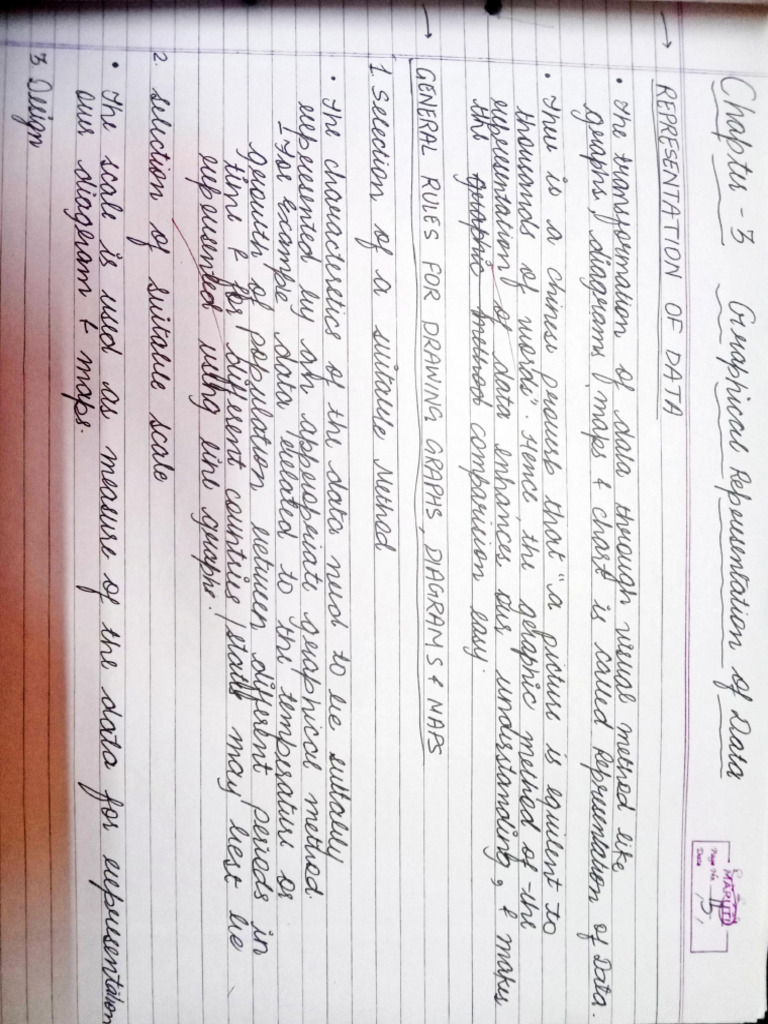 Chapter - 3 Graphical Representation of Data
MARUTI
Page No.
Date
→ REPRESENTATION OF DATA
• The transformation of data through visual method like
graphs, diagrams, maps & chart is called Representation of Data.
• There is a chinese proverb that "a picture is equilent to
thousands of words". Hence, the gelaphic method of the
representation of data enhances our understanding, & makes
the graphic method comparision easy.
→ GENERAL RULES FOR DRAWING GRAPHS, DIAGRAMS & MAPS
1. Selection of a suitable Method
• The characteristics of the data need to be suitably
represented by an appropriate graphical method.
For Example data related to the temperature or
growth of population between different periods in
time & for different countries/states may best be
represented using line graphs.
2. selection of suitable scale
• The scale is used as measure of the data for representation
over diagram & maps.
3. Design